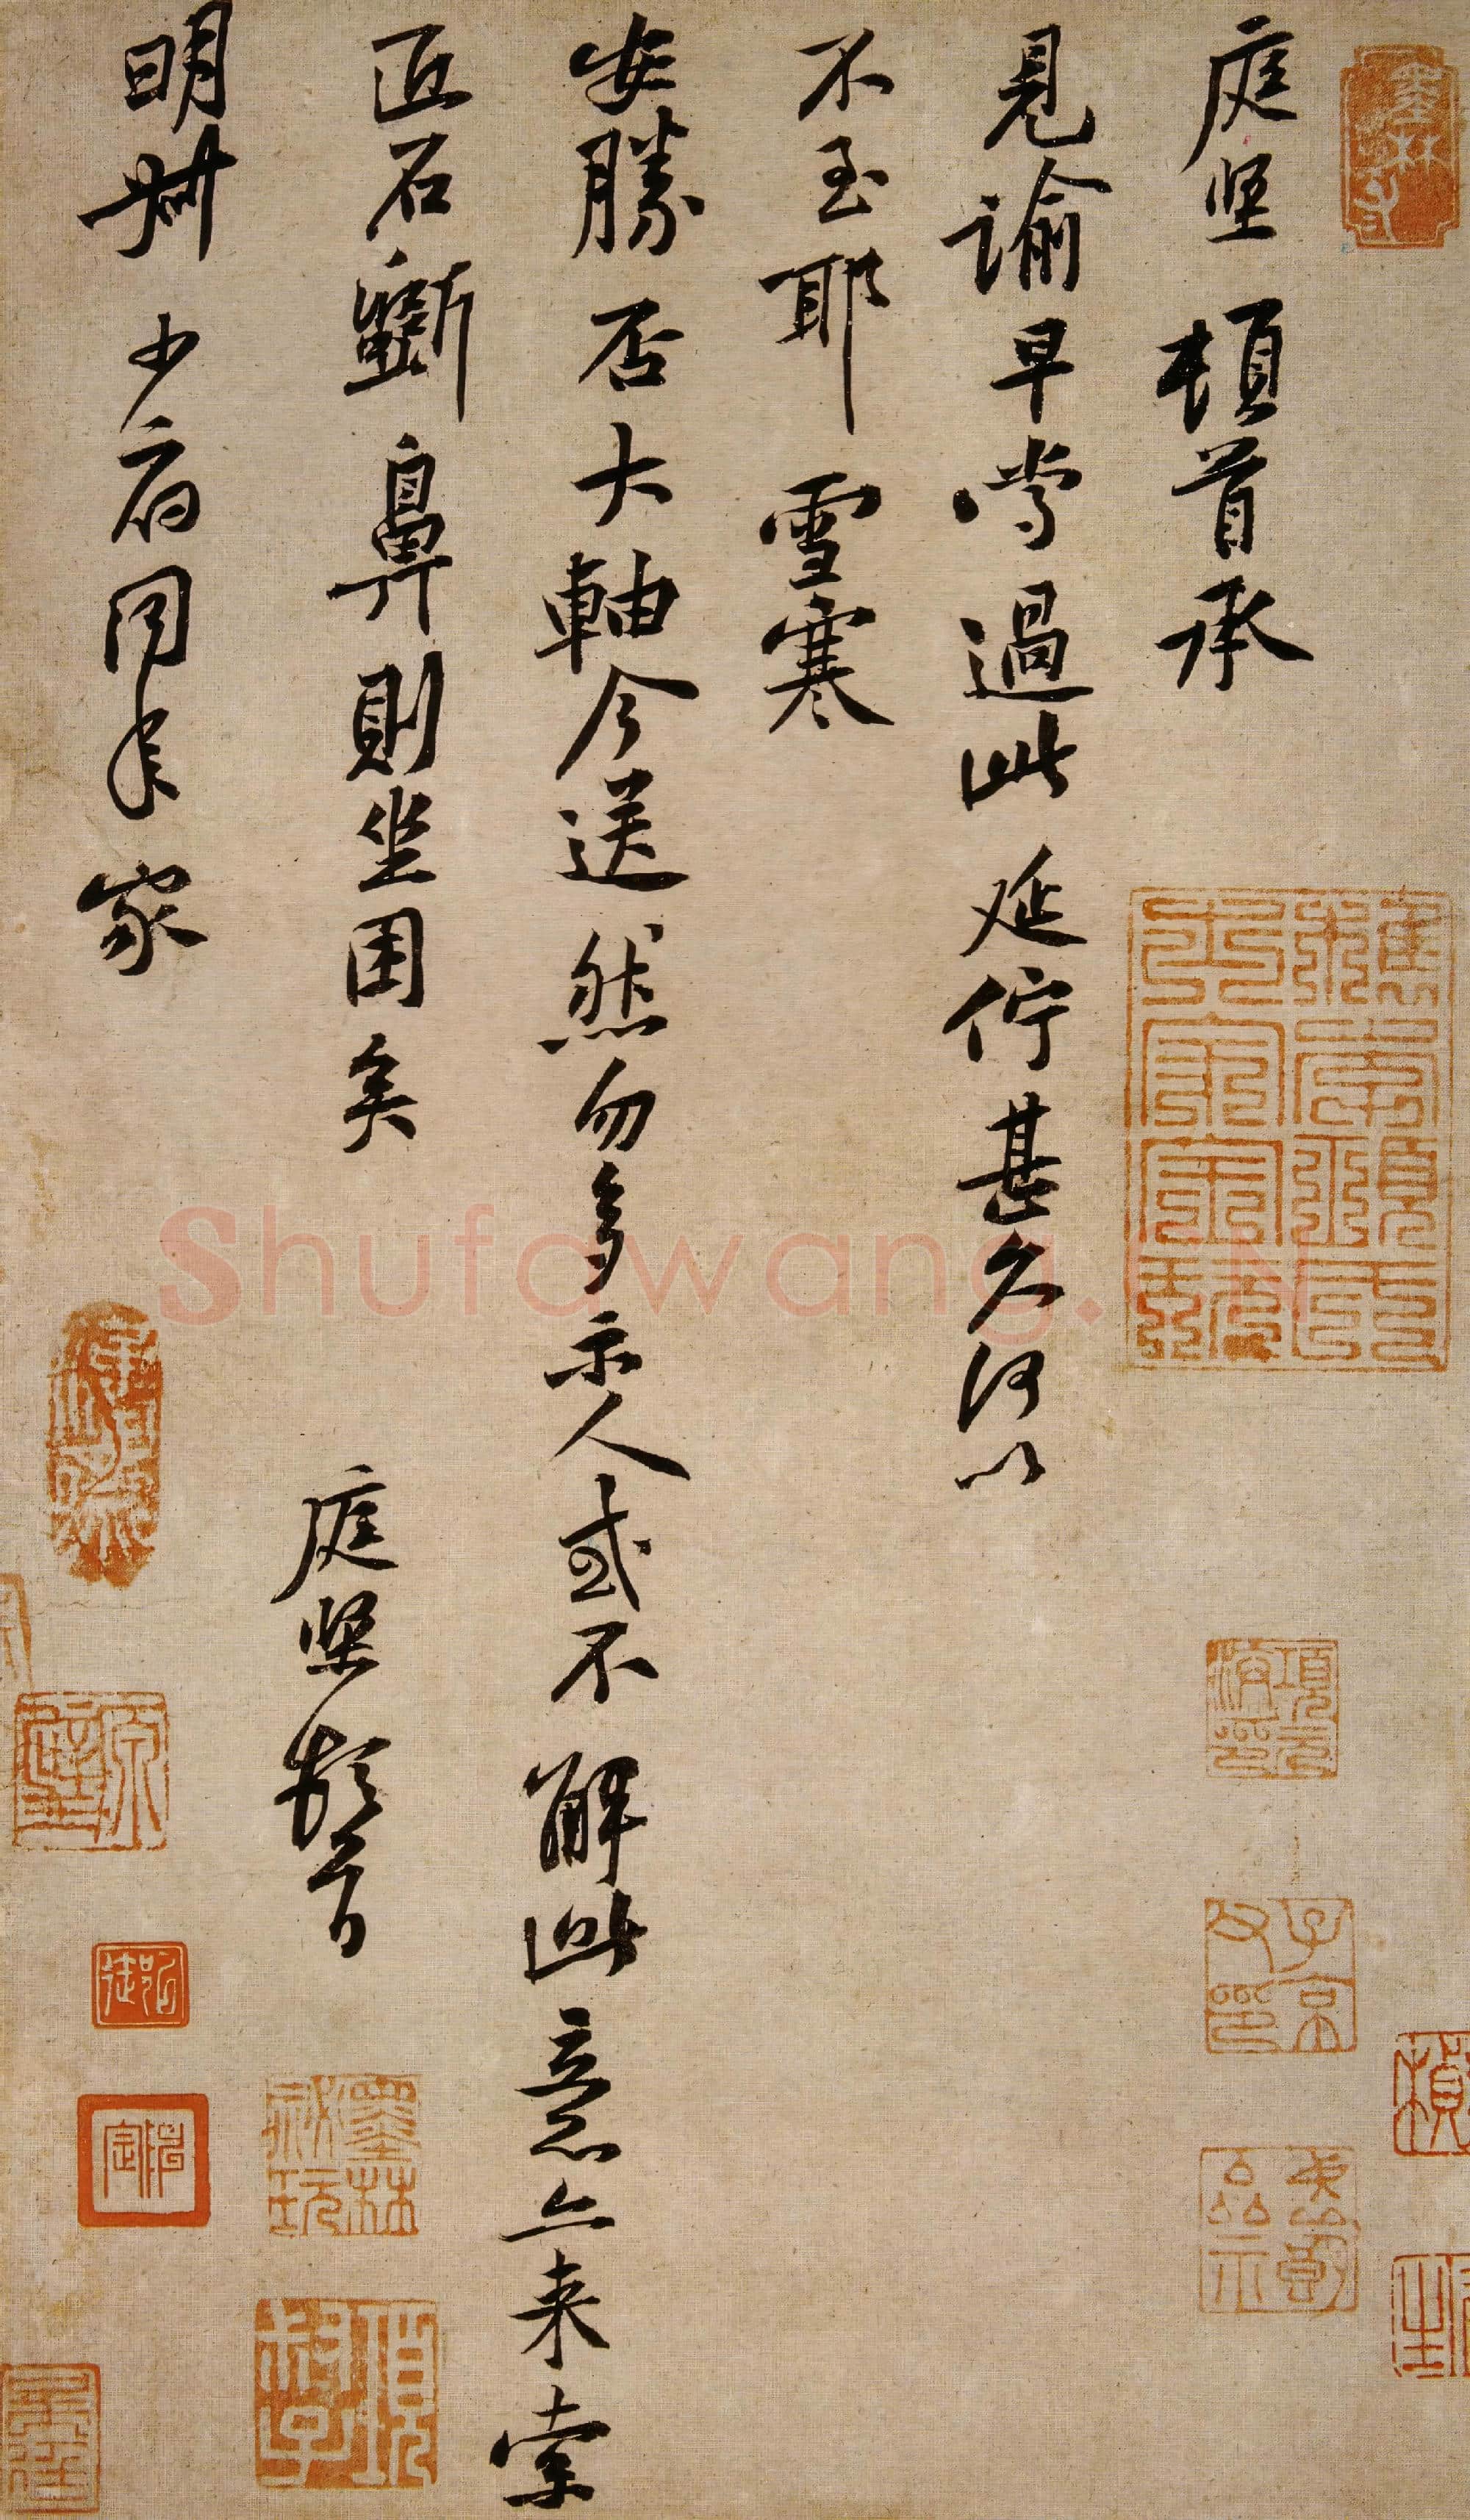 庭堅頓首承
見諭早嘗過此延佇甚久何以
不至耶雪寒
安勝否大軸今送然勿多示人或不解此意亦來索
匠石斲鼻則坐困矣
庭堅頓首
明叔少府同年家
墨林
項元汴印
子京父印
墨林秘玩
Shufawang.CN